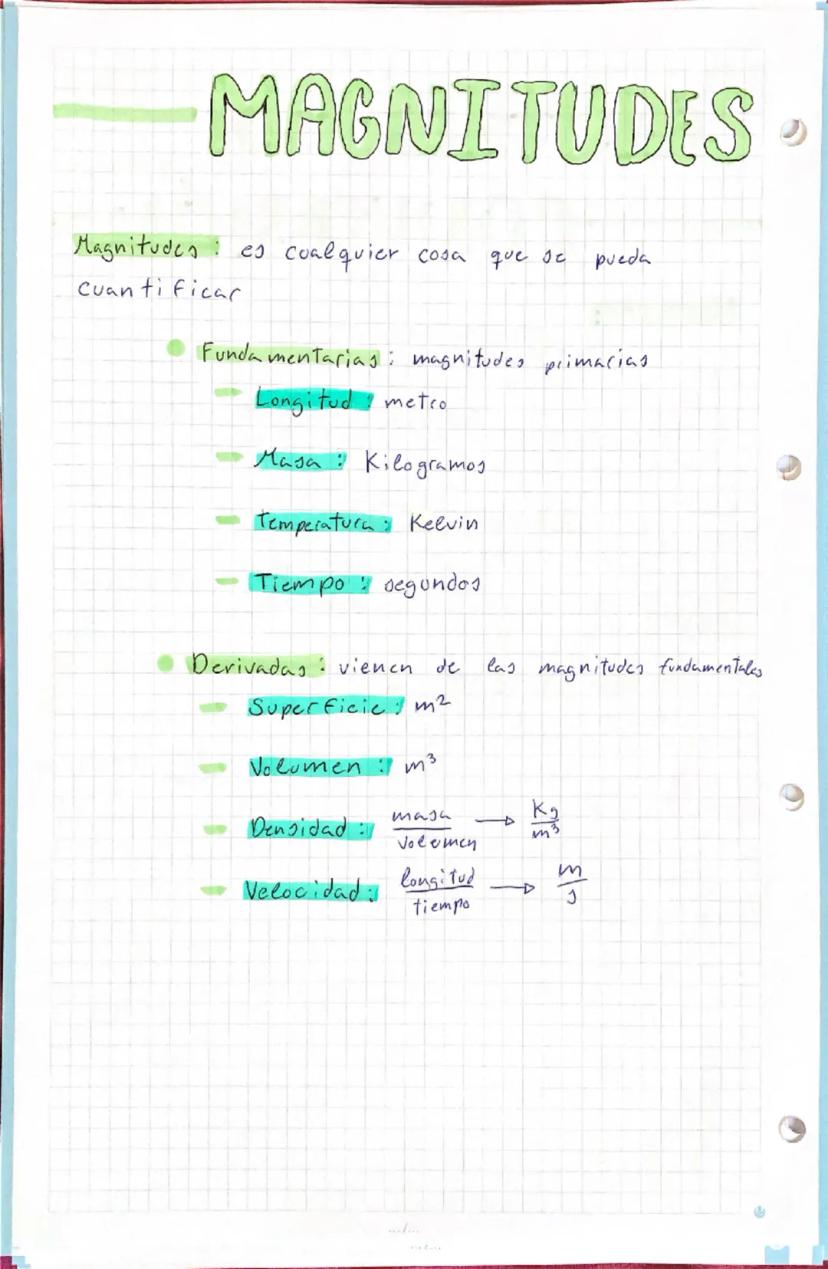 MAGNITUDES
Magnitudes: es cualquier cosa que se pueda
cuantificar
Fundamentarias: magnitudes primarias
Longitud: metro
Masa: Kilogramos
Temperatura: Kelvin
Tiempo: segundos
Derivadas: vienen de las magnitudes fundamentales
Superficie: m²
Volumen: m³
Densidad: masa/volumen → Kg/m³
Velocidad: longitud/tiempo → m/s